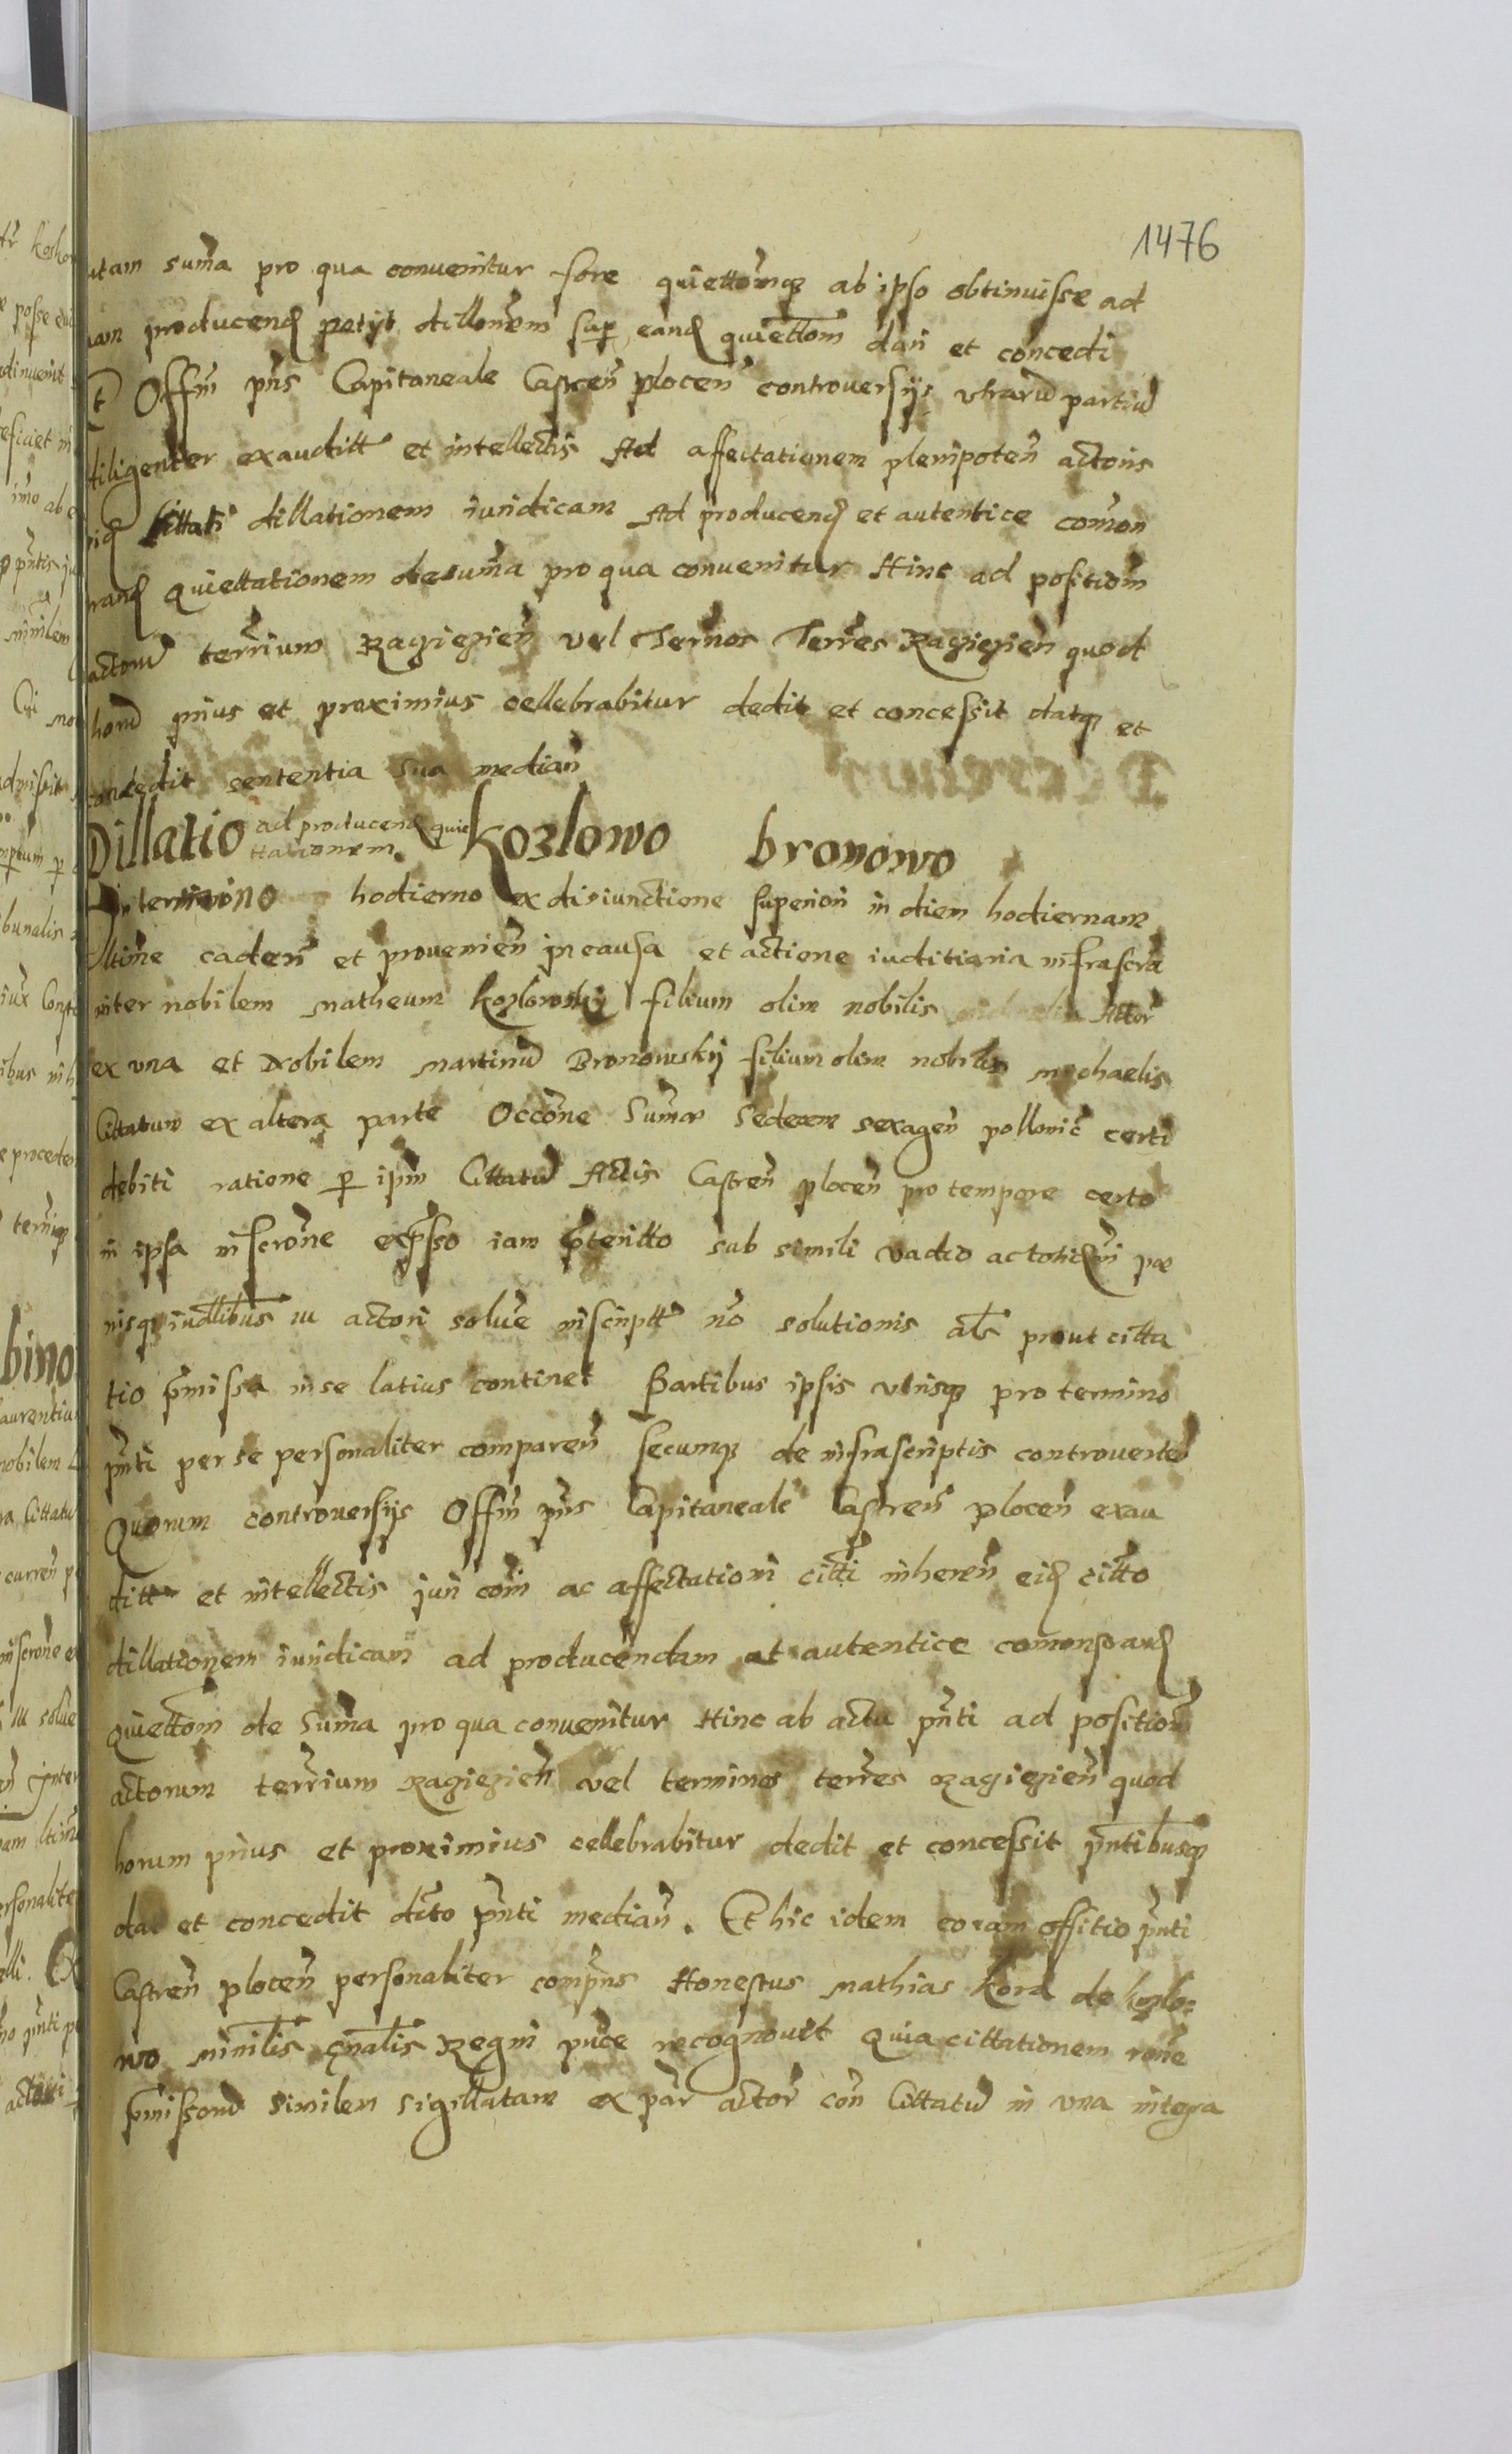 1476
utam suma pro qua convenitur fore quiettomq ab ipso obtinuisse ad
nam producend petyt dillonem sup eand quiettom dari et concedi
Et Offm pns Capitaneale Castren plocen controversijs utraru partiu
diligenter exauditt et intellectis Ad affectationem plenipoten actoris
eid Cittati dillationem iuridicam Ad producend et autentice comon
strand Quiettationem de suma pro qua convenitur Hinc ad positiom
actoru terrium Raziezien vel Terminos Terres Raziezien quod
horu prius et proximius cellebrabitur dedit et concessit datq et
concedit sententia sua median
Dillatio ad producend quie
ttationem Kozlowo bronowo
In termino hodierno ex disiunctione superiori in diem hodiernam
ltime caden et provenien in causa et actione iuditiaria infrascra
inter nobilem Matheum Kozlowskij filium olim nobilis Attor
ex una et Nobilem Martinu Bronowskij filium olim nobilis Michaelis
Cittatum ex altera parte Occone Sumae Sedecem sexagen pollonic certi
debiti ratione p ipm Cittatu Actis Castren plocen pro tempore certo
in ipsa inscrone expsso iam pteritto sub simili vadio ac totidem poe
nisq iudlibus iu actori solve inscriptt no solutionis als prout citta
tio pmissa in se latius continet Partibus ipsis utrisq pro termino
pnti per se personaliter comparen secumq de infrascriptis controverten
Quorum controversijs Offm pns Capitaneale Castren plocen exau
ditt et intellectis iuri com ac affectationi citti inheren eid citto
dillationem iuridicam ad producendam et autentice comonstrand
Quiettom de Suma pro qua convenitur Hinc ab actu pnti ad position
actorum terrium Raziezien vel terminos terres Raziezien quod
horum prius et proximius cellebrabitur dedit et concessit pntibusq
dat et concedit dcto pnti median. Et hic idem coram offitio pnti
Castren plocen personaliter comprns Honestus Mathias Kora de Kozlo
wo ministlis gnalis Regni puce recognovit Quia cittationem rone
pmissoru similem sigillatam ex par actor con Cittatu in una integra